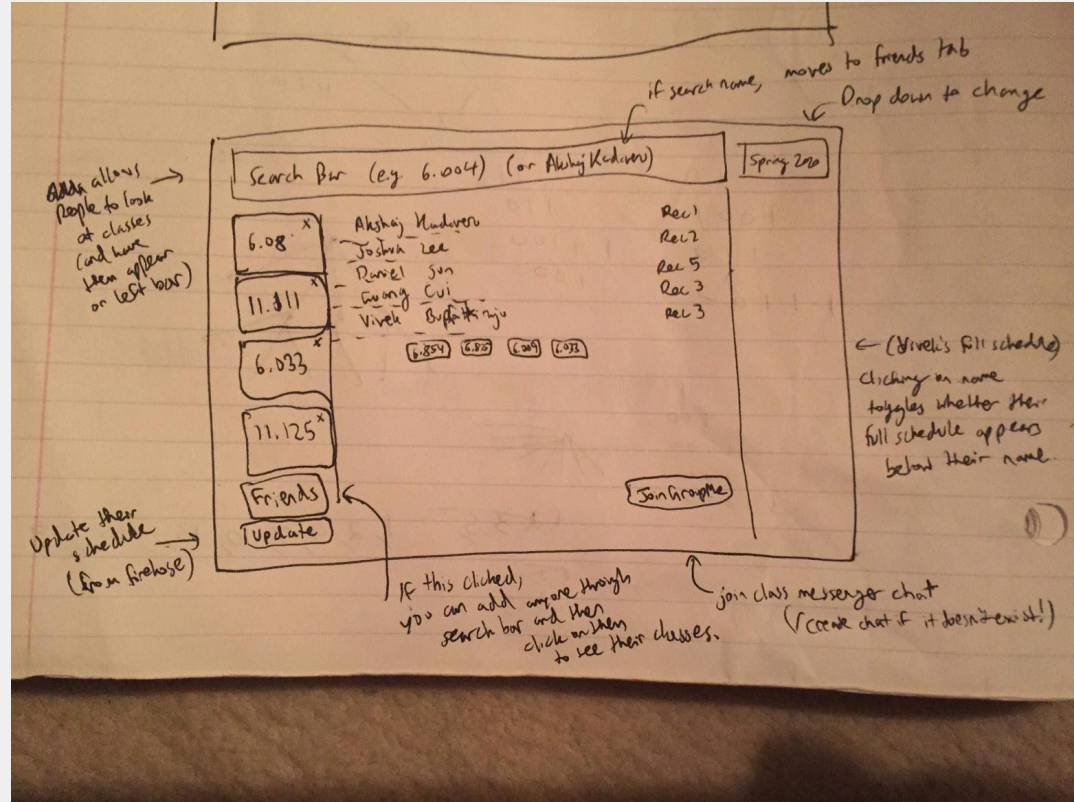 if search name, moves to friends tab
Drop down to change
Search Bar (e.g. 6.004) (or Akshaj Kadaveru)
Spring 2020
allows
people to look
at classes
(and have
them appear
on left bar)
6.08 x
11.111 x
6.033 x
11.125 x
Friends
Update
Akshaj Kadaveru Rec 1
Joshua Lee Rec 2
Daniel Sun Rec 5
Guang Cui Rec 3
Vivek Rec 3
6.854 6.009 6.033
Join GroupMe
← (Vivek's full schedule)
clicking on name
toggles whether their
full schedule appears
below their name
Update their
schedule
(from firehose)
If this clicked,
you can add anyone through
search bar and then
click on them
to see their classes.
join class messenger chat
(create chat if it doesn't exist!)